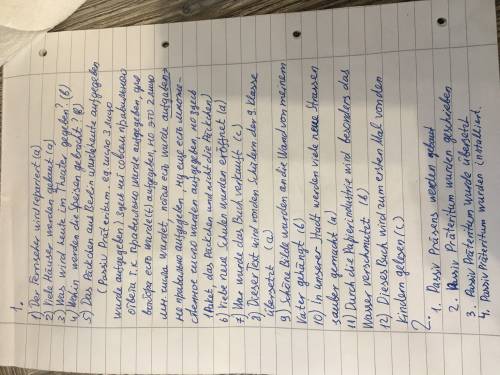 1.
1) Der Fernseher wird repariert (a)
2) Viele Häuser werden gebaut (a)
3) Was wird heute im Theater gegeben? (б)
4) Wohin werden die Speisen gebracht? (в)
5) Das Päckchen aus Berlin wurde heute aufgegeben
(Passiv Präteritum. ед число 3 лицо
wurde aufgegeben) Здесь нет совсем правильного
ответа т.к. правильно wurde aufgegeben, для
выбора есть wurde(t) aufgegeben, но это 2 лицо
мн. числа wurdet, потом есть wurde aufgaben
не правильно aufgegeben. Ну еще есть множе-
ственное число wurden aufgegeben, но здесь
1 Paket, das Päckchen und nicht die Päckchen)
6) Viele neue Schulen wurden eröffnet (a)
7) Wann wurde das Buch verkauft (c)
8) Dieser Text wird von den Schülern der 9. Klasse
übersetzt (a)
9) Schöne Bilde wurden an die Wand von meinem
Vater gehängt (b)
10) In unserer Stadt werden viele neue Strassen
sauber gemacht (a)
11) Durch die Papierindustrie wird besonders das
Wasser verschmutzt (b)
12) Dieses Buch wird zum ersten Mal von den
Kindern gelesen (c)
2.
1. Passiv Präsens werden gebaut
2. Passiv Präteritum wurden geschrieben
3. Passiv Präteritum wurde übersetzt
4. Passiv Präteritum wurden installiert.